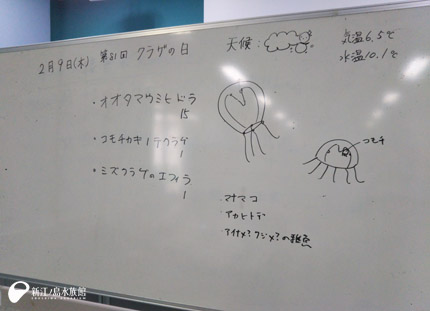 2月9日(木) 第81回 クラゲの日
天候:
気温 6.5℃
水温 10.1℃
・オオタマウミヒドラ
15
・コモチカギノテクラゲ
1
・ミズクラゲのエフィラ
1
コモチ
・マナマコ
・アカヒトデ
・アイナメ?クジメ?の稚魚
新江ノ島水族館
ENOSHIMA AQUARIUM